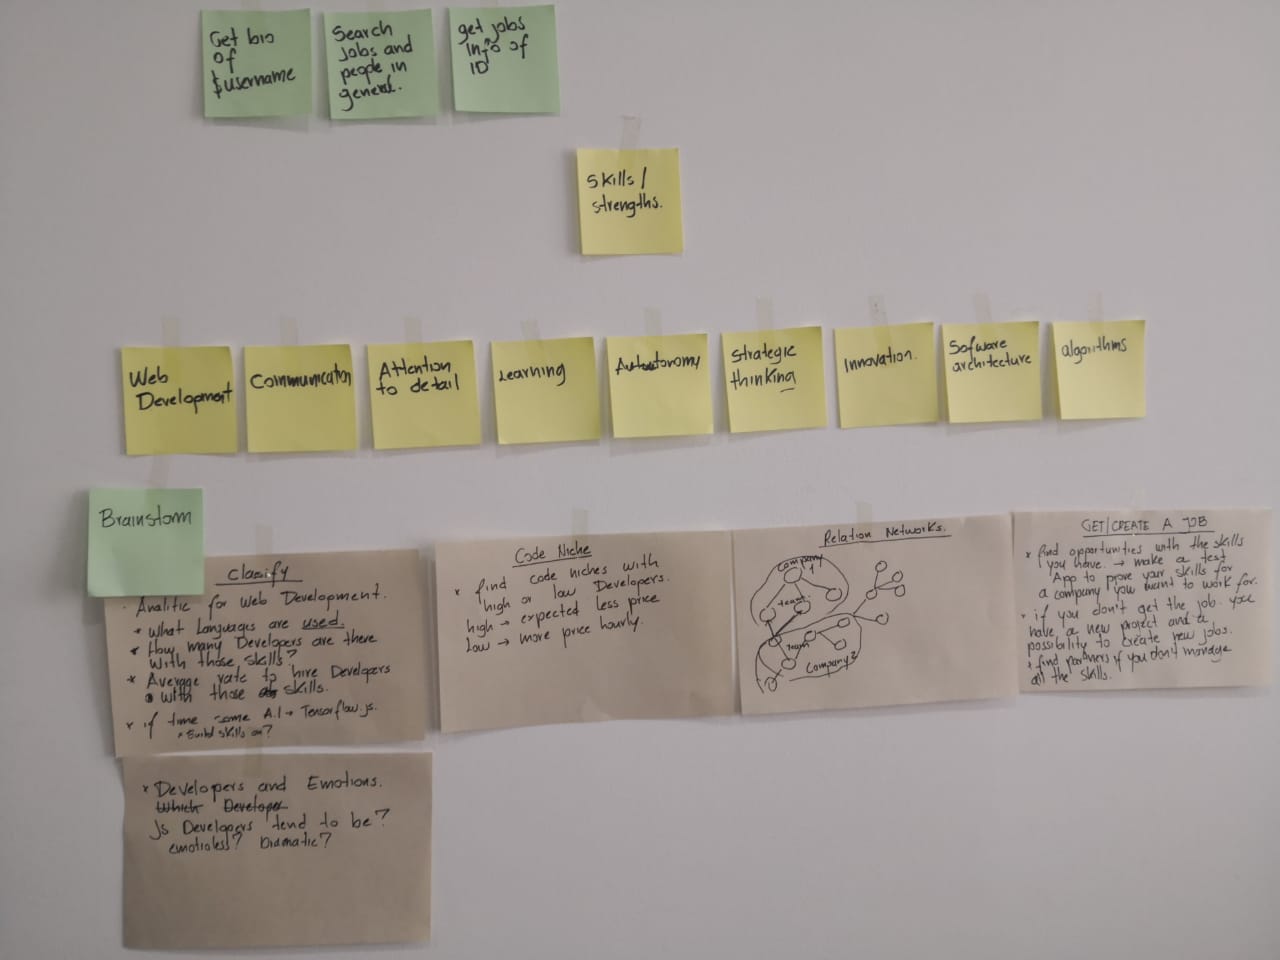 Get bio
of
$username
Search
jobs and
people in
general.
get jobs
info of
ID
Skills/
strengths.
Web
Development
Communication
Attention
to detail
Learning
Autonomy
Strategic
thinking
Innovation.
Sofware
architecture
algorithms
Brainstorm
Classify
. Analitic for Web Development.
* What Languages are used.
* How many Developers are there
with those skills?
* Average rate to hire Developers
with those skills.
* if time some A.I → Tensorflow.js.
* Build skills on?
* Developers and Emotions.
Which Developer
Js Developers tend to be?
emotioless? Dramatic?
Code Niche
* find code niches with
high or low Developers.
high → expected less price
Low → more price hourly.
Relation Networks.
Company 1
team.
team
Company 2
GET/CREATE A JOB
* find opportunities with the skills
you have. → make a test
App to prove your skills for
a company you want to work for.
* if you don't get the job. you
have a new project and a
possibility to create new jobs.
* find partners if you don't manage
all the skills.